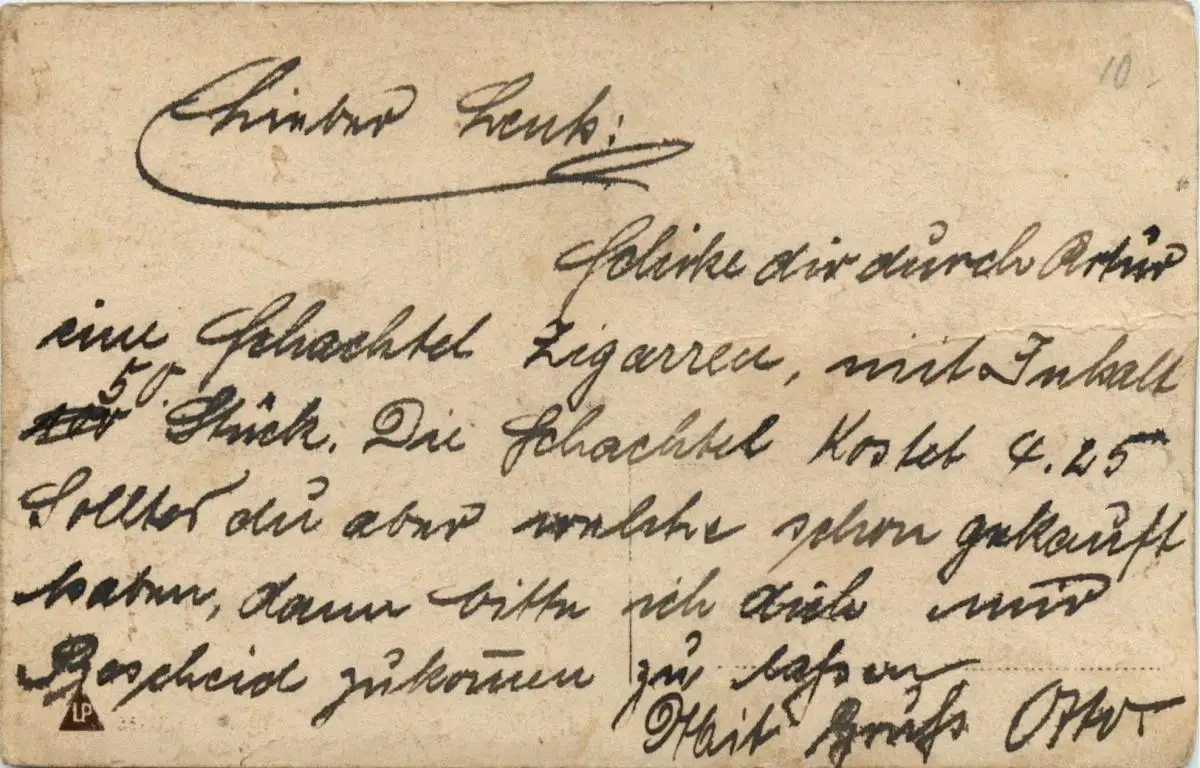 10
Lieber Lenk:
Schicke dir durch Artur
eine Schachtel Zigarren, mit Inhalt
50. Stück. Die Schachtel Kostet 4.25
Solltes du aber welche schon gekauft
haben, dann bitte ich dich mir
Bescheid zukom̅en zu lassen
Mit Gruß Otto.
LP